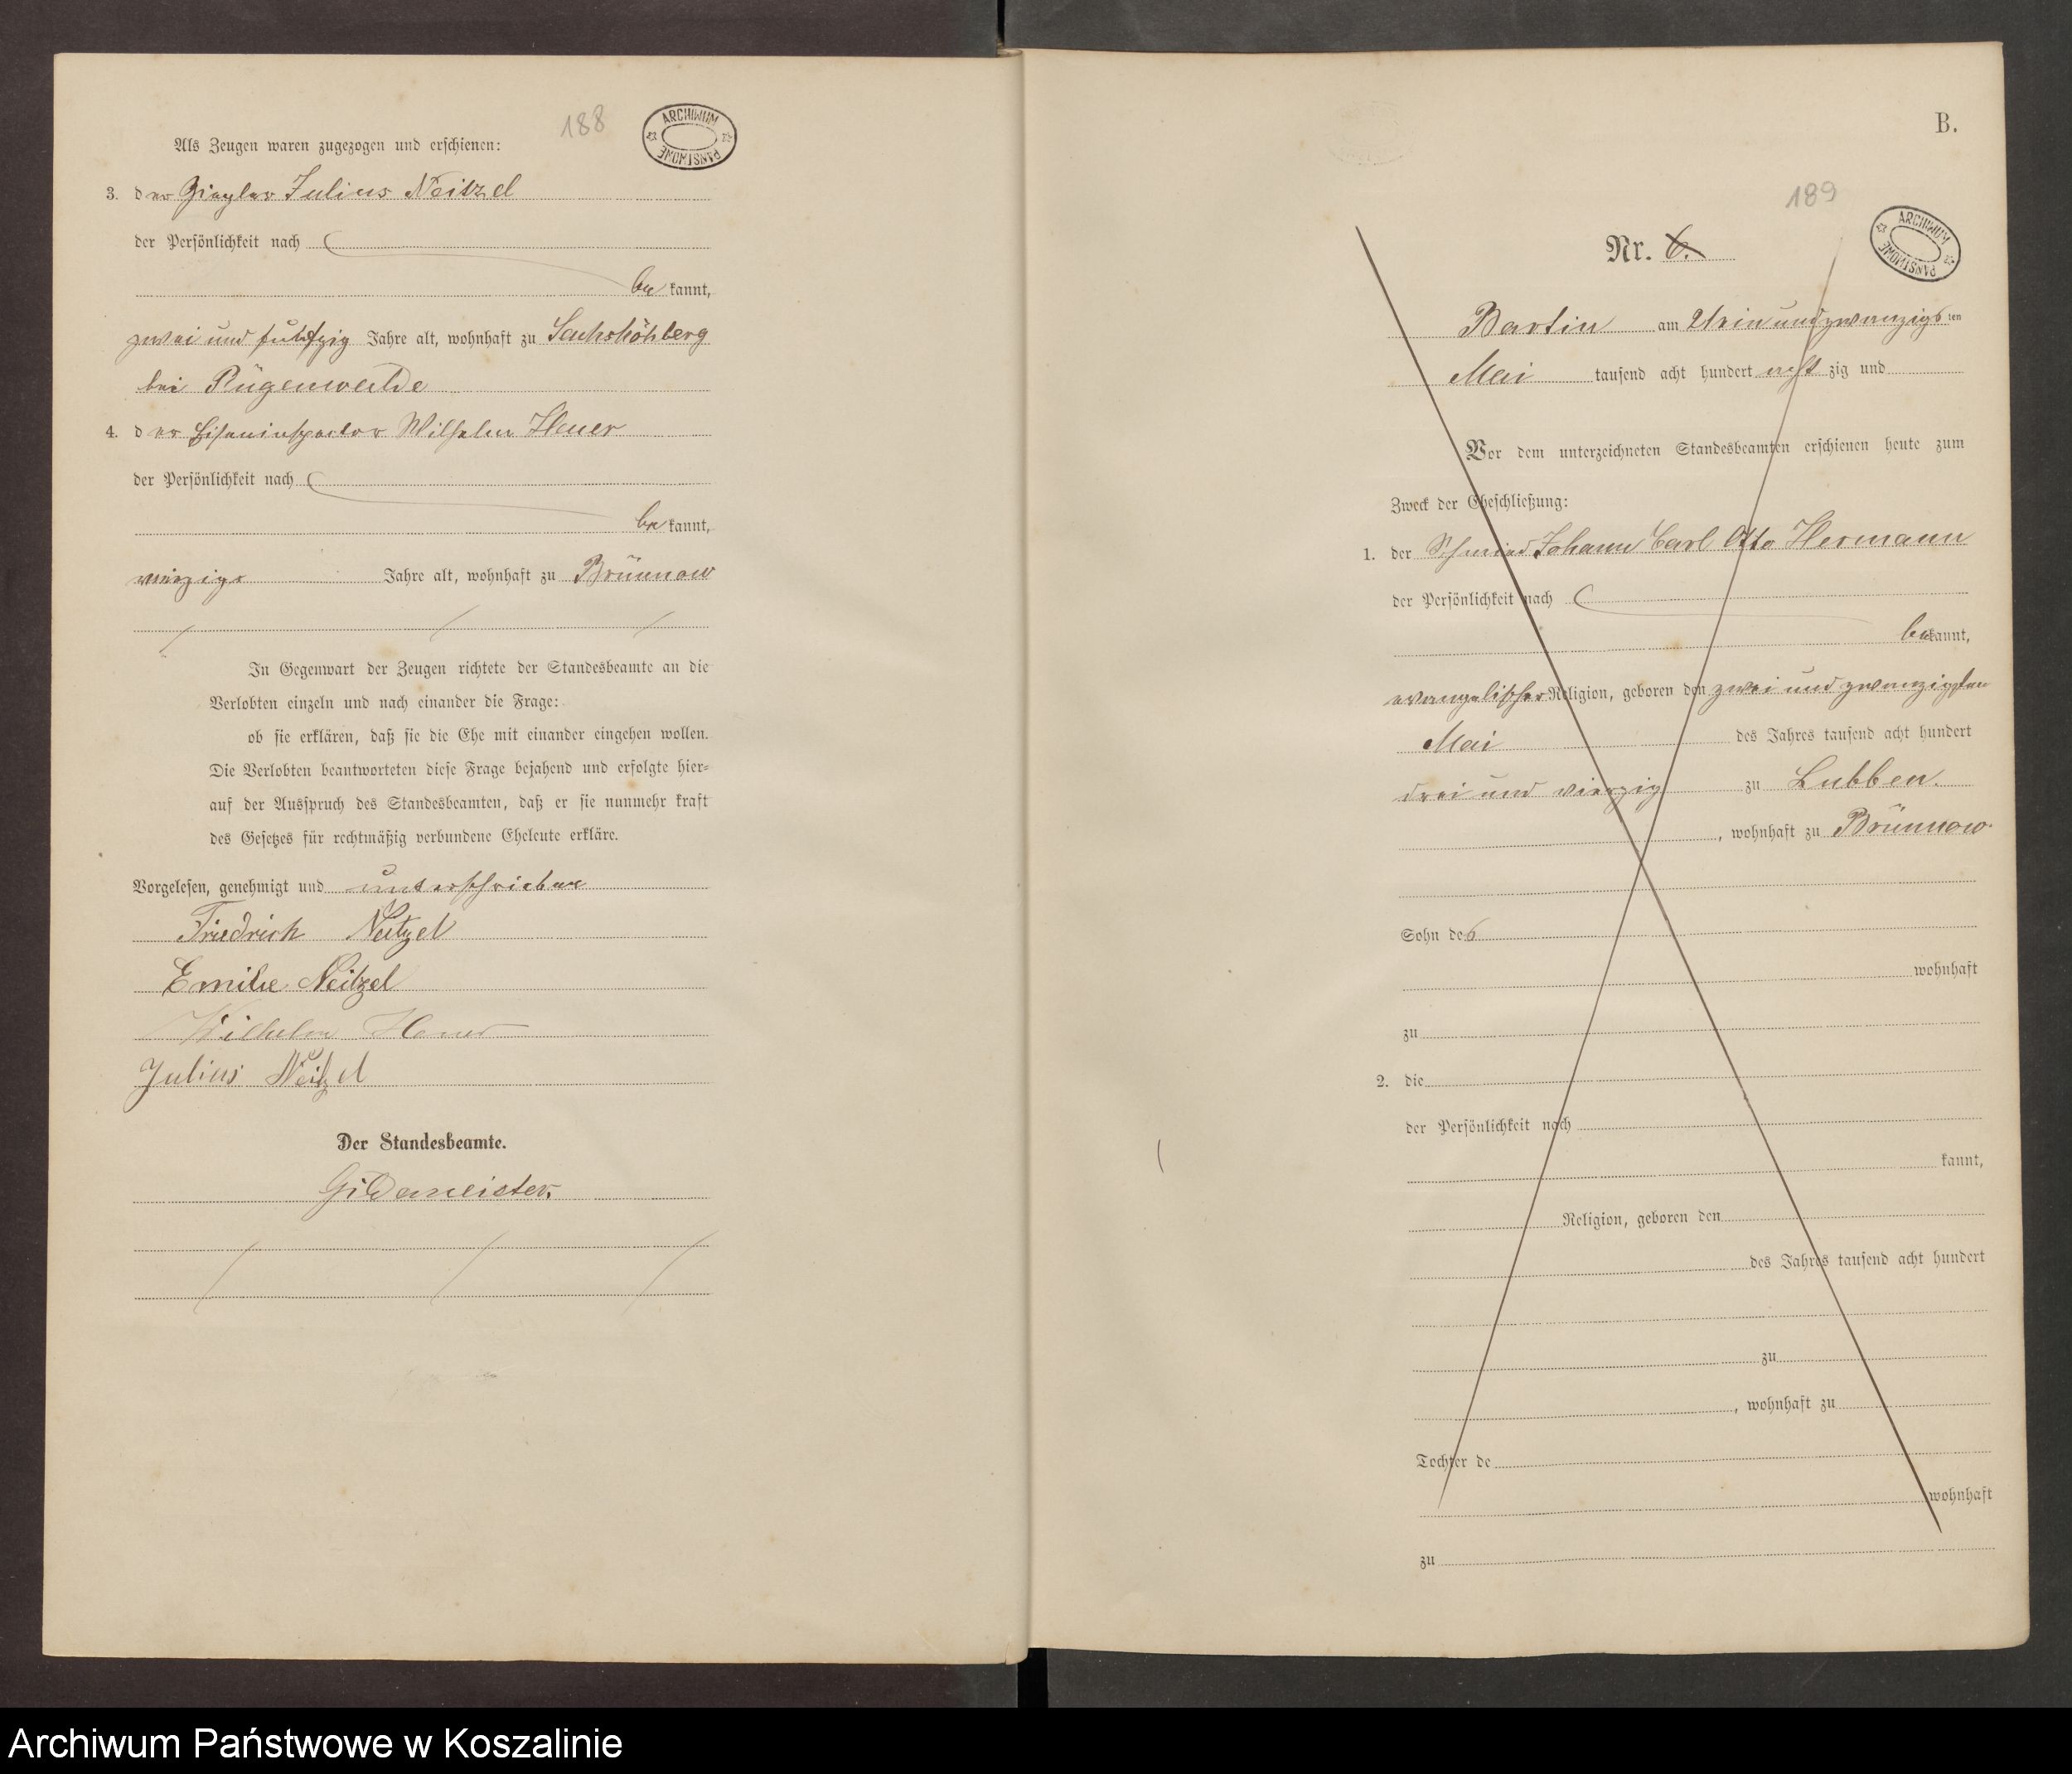 188
ARCHIWUM PAŃSTWOWE
Als Zeugen waren zugezogen und erschienen:
3. der Ziegler Julius Neitzel
der Persönlichkeit nach
be kannt,
zwei und fünfzig Jahre alt, wohnhaft zu
bei Rügenwalde
4. der Wilhelm Heuer
der Persönlichkeit nach
be kannt,
vierzig Jahre alt, wohnhaft zu Brünnow
In Gegenwart der Zeugen richtete der Standesbeamte an die
Verlobten einzeln und nach einander die Frage:
ob sie erklären, daß sie die Ehe mit einander eingehen wollen.
Die Verlobten beantworteten diese Frage bejahend und erfolgte hier-
auf der Ausspruch des Standesbeamten, daß er sie nunmehr kraft
des Gesetzes für rechtmäßig verbundene Eheleute erkläre.
Vorgelesen, genehmigt und unterschrieben
Friedrich Neitzel
Emilie Neitzel
Wilhelm Heuer
Julius Neitzel
Der Standesbeamte.
Gildemeister.
B.
189
ARCHIWUM PAŃSTWOWE
Nr. 6.
Bartin am ein und zwanzigs ten
Mai tausend acht hundert acht zig und
Vor dem unterzeichneten Standesbeamten erschienen heute zum
Zweck der Eheschließung:
1. der Schmied Johann Carl Otto Hermann
der Persönlichkeit nach
be kannt,
evangelischer Religion, geboren den zwei und zwanzigsten
Mai des Jahres tausend acht hundert
drei und vierzig zu Lubben.
, wohnhaft zu Brünnow
Sohn des
wohnhaft
zu
2. die
der Persönlichkeit nach
kannt,
Religion, geboren den
des Jahres tausend acht hundert
zu
, wohnhaft zu
Tochter de
wohnhaft
zu
Archiwum Państwowe w Koszalinie